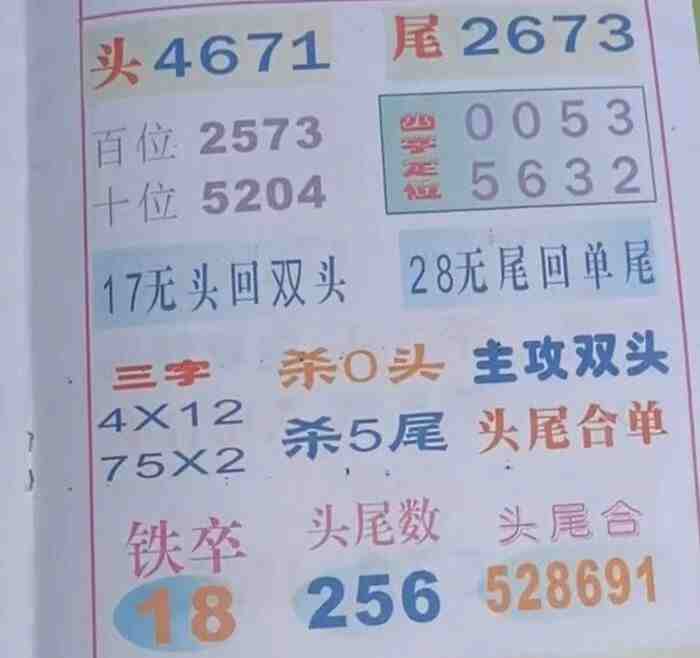 头 4671 尾 2673
百位 2573
十位 5204
四字定位
0053
5632
17无头回双头 28无尾回单尾
三字 杀0头 主攻双头
4X12
75X2
杀5尾 头尾合单
铁卒 头尾数 头尾合
18 256 528691